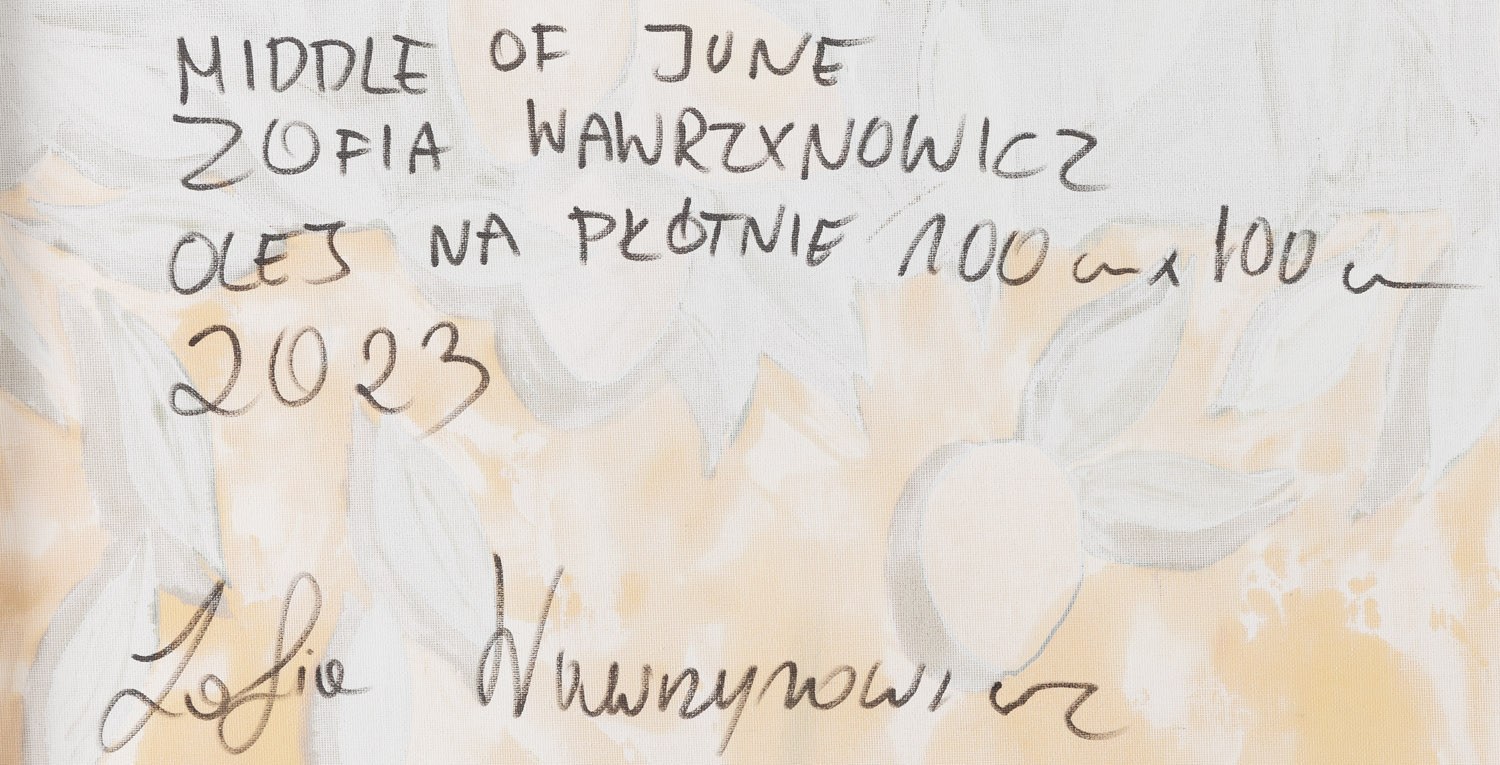 MIDDLE OF JUNE
ZOFIA WAWRZYNOWICZ
OLEJ NA PŁÓTNIE 100 cm x 100 cm
2023
Zofia Wawrzynowicz